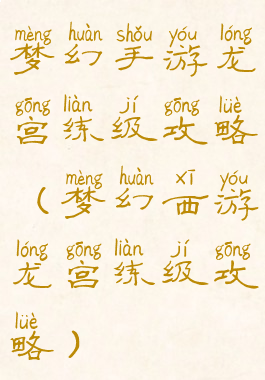 mèng huàn shǒu yóu lóng
梦幻手游龙
gōng liàn jí gōng lüè
宫练级攻略
mèng huàn xī yóu
（梦幻西游
lóng gōng liàn jí gōng
龙宫练级攻
lüè
略）